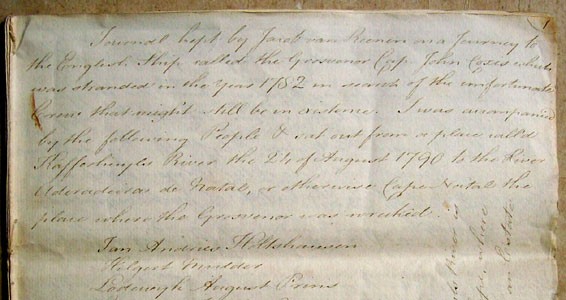 Journal kept by Jacob van Reenen on a Journey to
the English Ship called the Grosvenor Cap John Coxes which
was stranded in the Year 1782 in search of the unfortunate
Crew that might still be in existence. I was accompanied
by the following People & set out from a place called
River the 24 of August 1790 to the River
de Natal, or otherwise Cape Natal the
place where the Grosvenor was wrecked.
Jan Andries Holtshausen
Hilgert Mudder
Lodewyk August Prins
where